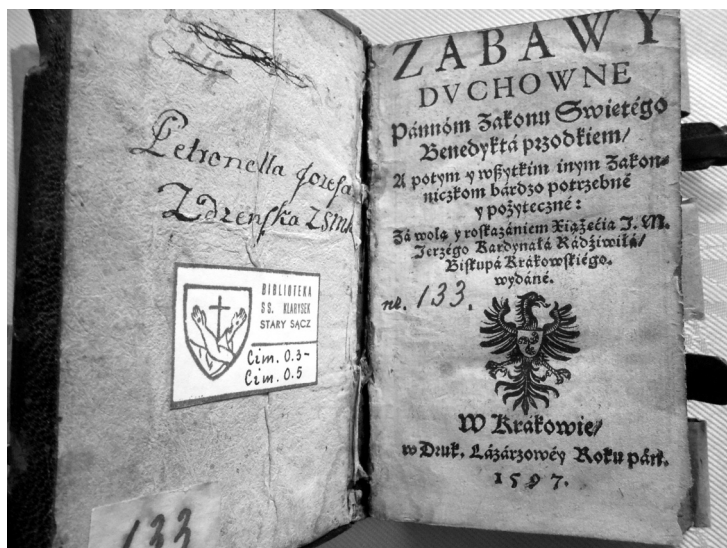 Petronella Jozefa
Zdzenſka ZSMK
BIBLIOTEKA
SS. KLARYSEK
STARY SĄCZ
Cim. 0.3-
Cim. 0.5
133
ZABAWY
DVCHOWNE
Pánnóm Zakonu Swietégo
Benedyktá przodkiem/
A potym y wßytkim inym Zakon⸗
niczkom bárdzo potrzebné
y pożyteczné:
Zá wolą y roſkazániem Xiążéćia J. M.
Jerzégo Kardynałá Rádźiwiłá/
Biſkupá Krákowſkiégo.
wydáné.
no. 133.
W Krákowie/
w Druk. Lázárzowéy Roku páń.
1597.